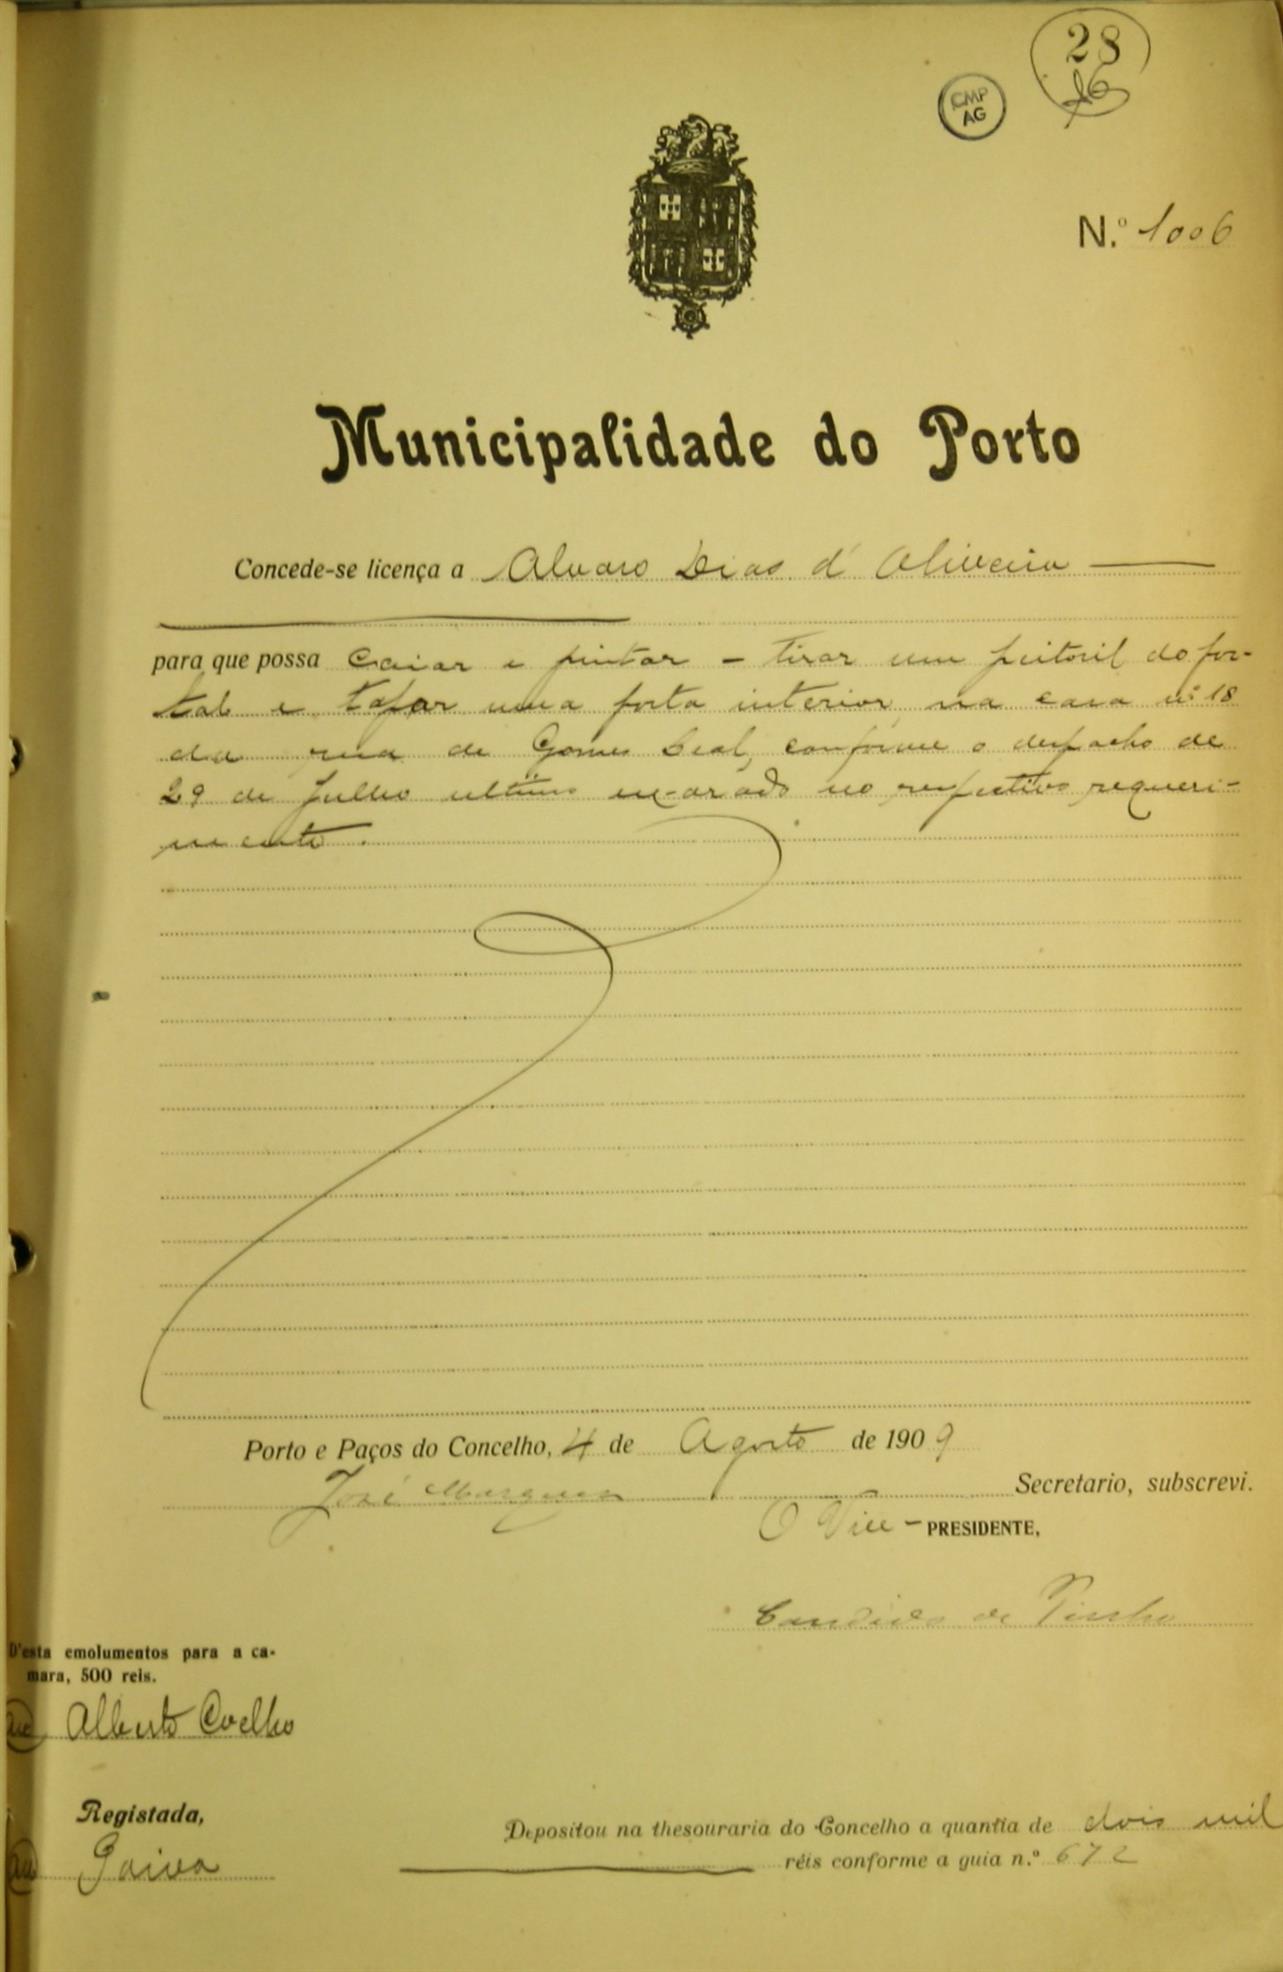 28
CMP
AG
N.º 1006
Municipalidade do Porto
Concede-se licença a Alvaro Dias d' Oliveira
para que possa caiar e pintar - tirar um peitoril do por-
tal e tapar uma porta interior, na casa nº 18
da rua de Gomes Leal, conforme o despacho de
29 de Julho ultimo exarado no respectivo requeri-
mento.
Porto e Paços do Concelho, 4 de Agosto de 1909
José Marques Secretario, subscrevi.
O Vice-PRESIDENTE,
Candido de Pinho
D'esta emolumentos para a ca-
mara, 500 reis.
Alberto Coelho
Registada,
Paiva
Depositou na thesouraria do Concelho a quantia de dois mil
réis conforme a guia n.º 672